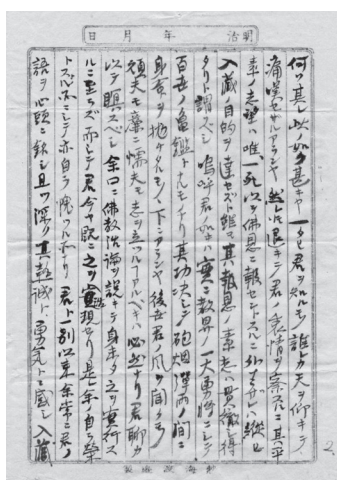 明治 年 月 日
何ゾ其レ此ノ如ク甚キヤ一タビ君ヲ知ルモノ誰カ天ヲ仰キテ
痛嘆セサルアランヤ然レトモ退キテ君ノ衷情ヲ察スルニ其平
素ノ志望ハ唯一死以テ佛恩ニ報セントスルニ外ナラサレハ縦ヒ
入蔵ノ目的ヲ達セズト雖モ其報恩ノ素志ハ貫徹シ得
タリト謂フベシ嗚呼君ノ如キハ實ニ教界ノ一大勇将ニシテ
百世ノ亀鑑トナルモノナリ其功決シテ砲烟彈雨ノ間ニ
身ヲ抛ケタルモノヽ下ニアランヤ後世君ノ風ヲ聞クモノ
頑夫モ廉ニ懦夫モ志ヲ立ツルアルベキハ必然ナリ君聊カ
以テ瞑スベシ余口ニ佛教活論ヲ説キテ身未タ之ヲ實行ス
ルニ至ラズ而シテ君今ヤ既ニ之ヲ實現セリ是レ余ノ自ラ榮
トスル所ニシテ亦自ラ愧ツル所ナリ君ト一別以来余常ニ君ノ
語ヲ心頭ニ銘シ且ツ深ク其熱誠ト勇気トニ感シ入蔵
2